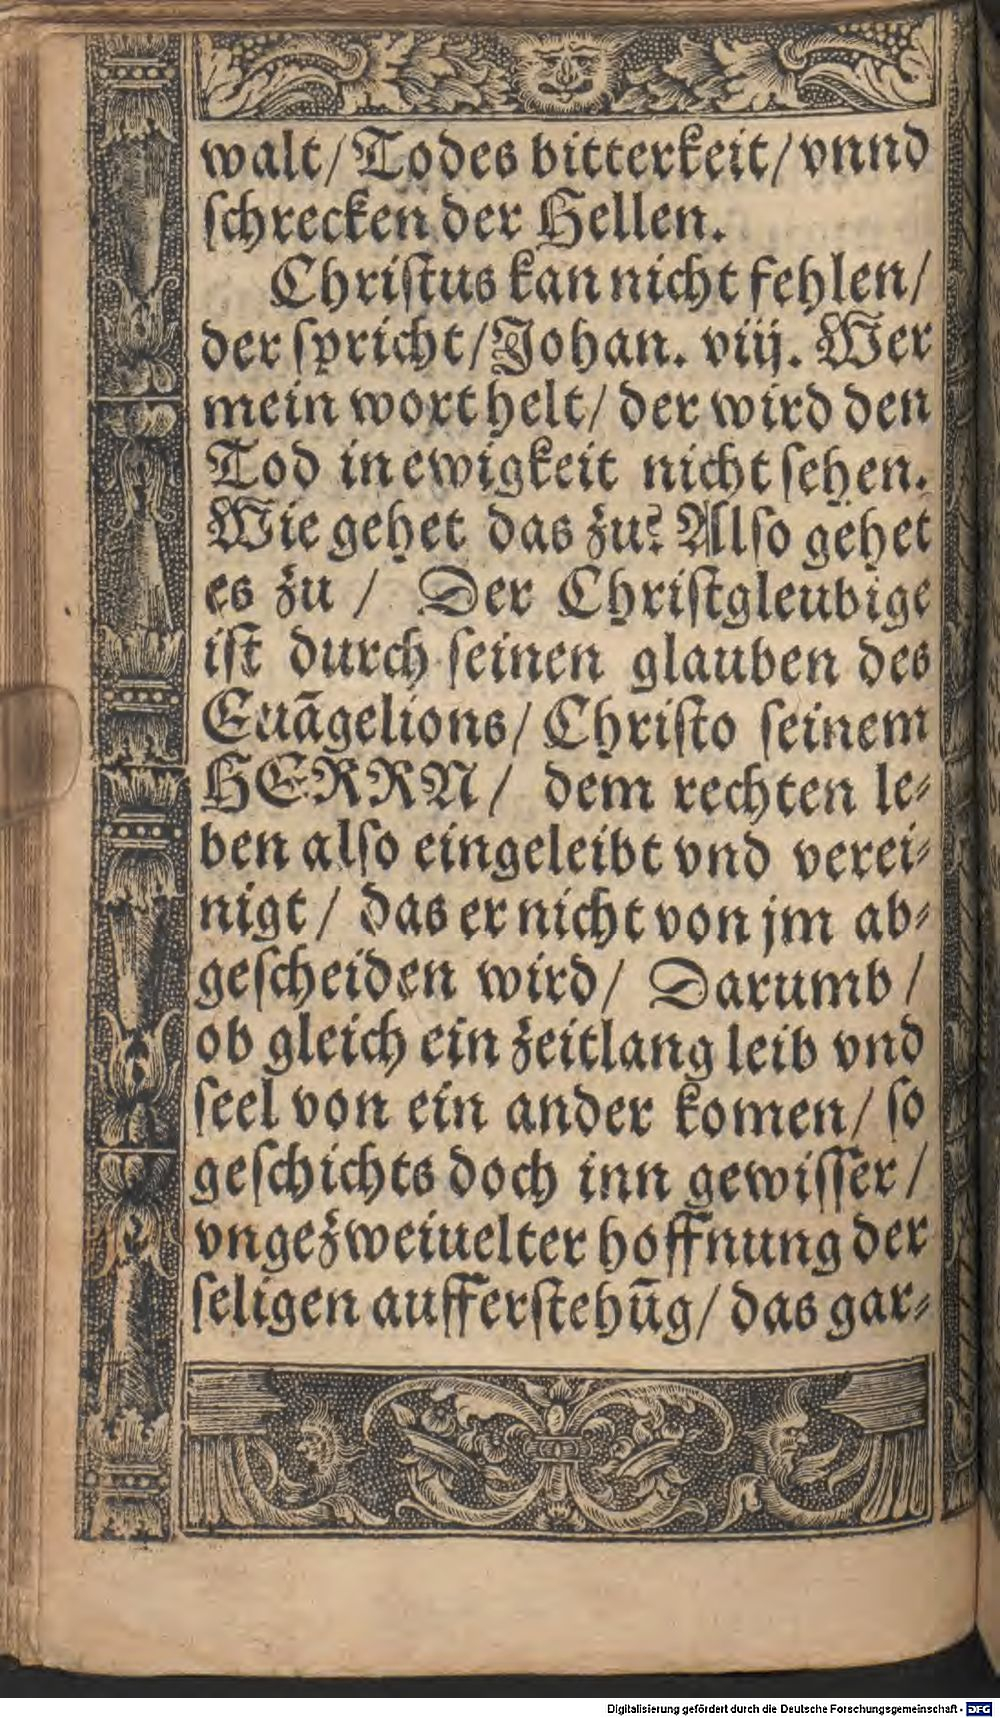 walt/Todes bitterkeit/vnnd
ſchrecken der Hellen.
Chriſtus kan nicht fehlen/
der ſpricht/Johan. viij. Wer
mein wort helt/ der wird den
Tod in ewigkeit nicht ſehen.
Wie gehet das zu? Alſo gehet
es zu / Der Chriſtgleubige
iſt durch ſeinen glauben des
Euãgelions/ Chriſto ſeinem
HERRN/ dem rechten le⸗
ben alſo eingeleibt vnd verei⸗
nigt/ das er nicht von jm ab⸗
geſcheiden wird/ Darumb/
ob gleich ein zeitlang leib vnd
ſeel von ein ander komen/ ſo
geſchichts doch inn gewiſſer/
vngezweiuelter hoffnung der
ſeligen aufferſtehūg/ das gar⸗
Digitalisierung gefördert durch die Deutsche Forschungsgemeinschaft - DFG